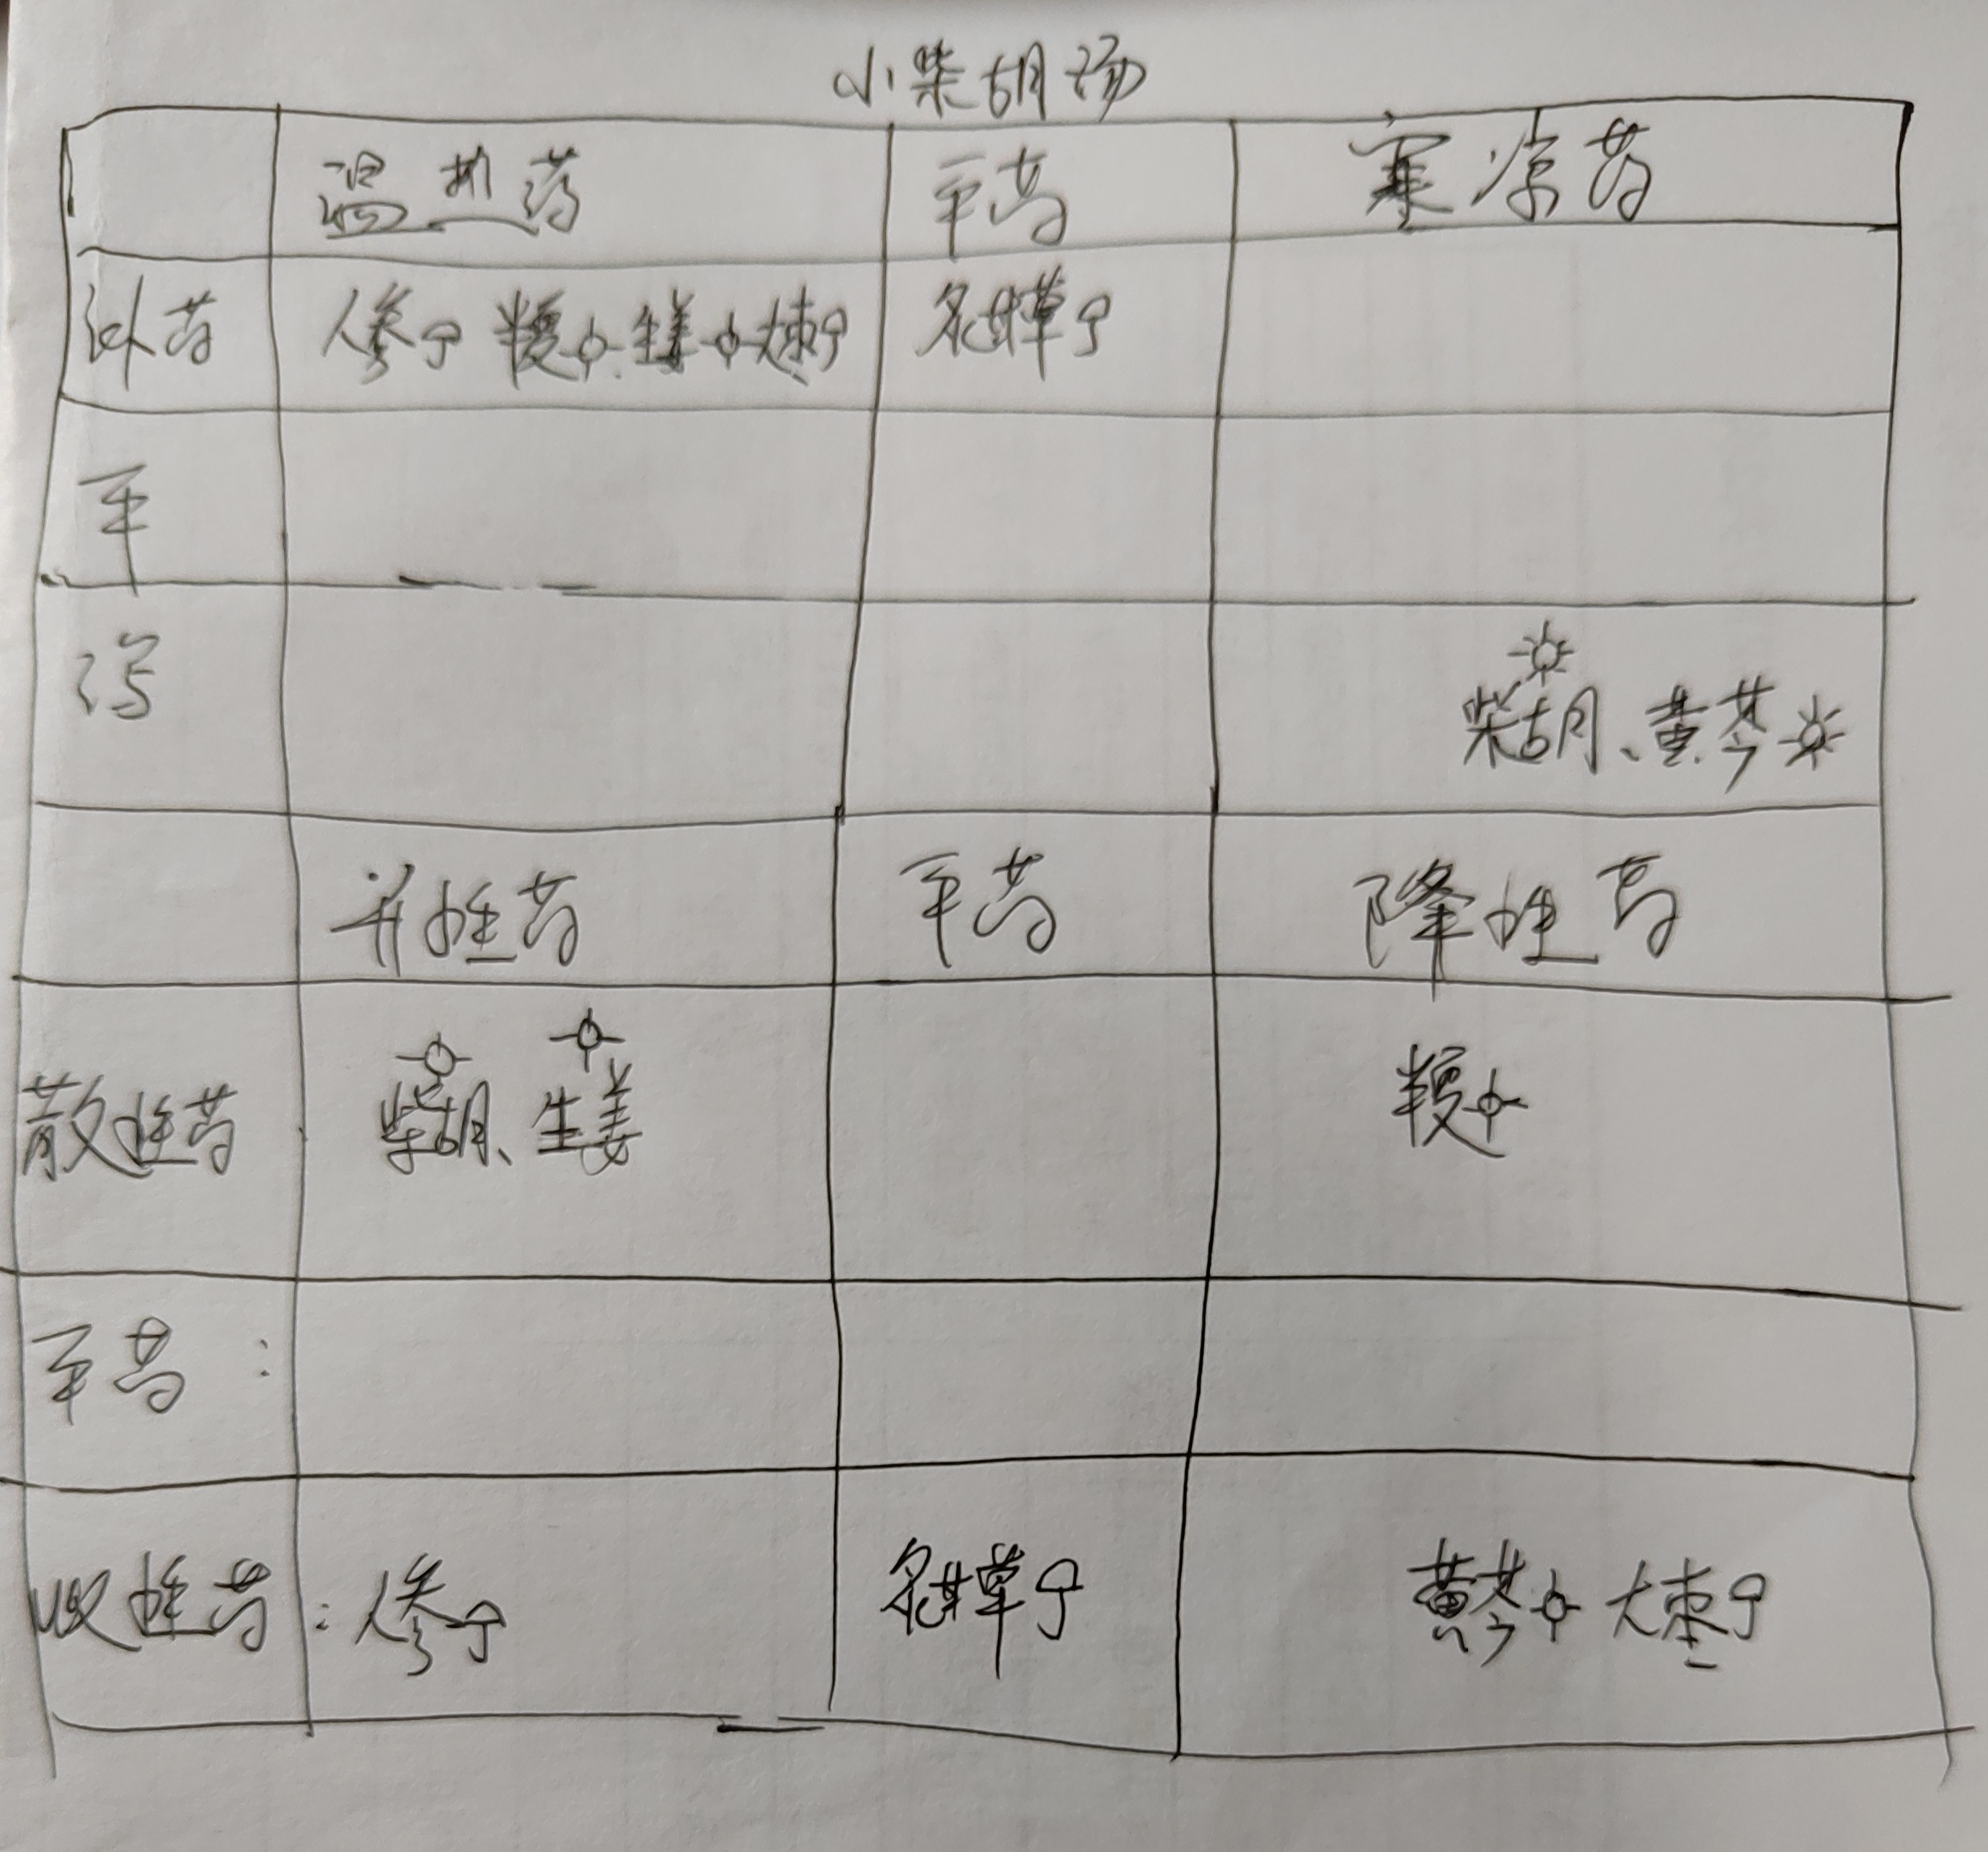 小柴胡汤
温热药 平药 寒凉药
补药 人参 半夏 生姜 大枣 炙甘草
平
泻 柴胡、黄芩
升性药 平药 降性药
散性药 柴胡、生姜 半夏
平药:
收性药: 人参 炙甘草 黄芩 大枣